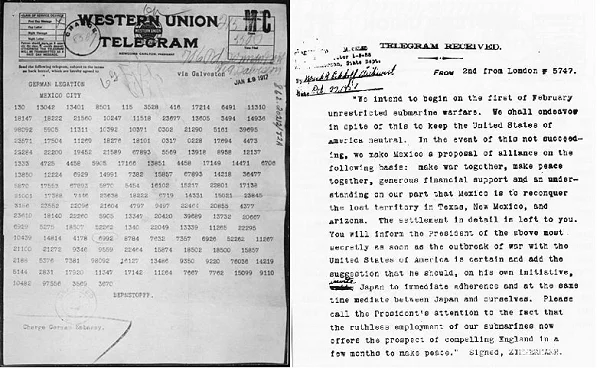 WESTERN UNION
TELEGRAM
via Galveston
JAN 19 1917
GERMAN LEGATION
MEXICO CITY
130 13042 13401 8501 115 3528 416 17214 6491 11310
18147 18222 21560 10247 11518 23677 13605 3494 14936
98092 5905 11311 10392 10371 0302 21290 5161 39695
23571 17504 11269 18276 18101 0317 0228 17694 4473
22284 22200 19452 21589 67893 5569 13918 8958 12137
1333 4725 4458 5905 17166 13851 4458 17149 14471 6706
13850 12224 6929 14991 7382 15857 67893 14218 36477
5870 17553 67893 5870 5454 16102 15217 22801 17138
21001 17388 7446 23638 18222 6719 14331 15021 23845
3156 23552 22096 21604 4797 9497 22464 20855 4377
23610 18140 22260 5905 13347 20420 39689 13732 20667
6929 5275 18507 52262 1340 22049 13339 11265 22295
10439 14814 4178 6992 8784 7632 7357 6926 52262 11267
21100 21272 9346 9559 22464 15874 18502 18500 15857
2188 5376 7381 98092 16127 13486 9350 9220 76036 14219
5144 2831 17920 11347 17142 11264 7667 7762 15099 9110
10482 97556 3569 3670
BEPNSTOPFF.
Charge German Embassy.
TELEGRAM RECEIVED.
FROM 2nd from London # 5747.
"We intend to begin on the first of February
unrestricted submarine warfare. We shall endeavor
in spite of this to keep the United States of
America neutral. In the event of this not succeed-
ing, we make Mexico a proposal of alliance on the
following basis: make war together, make peace
together, generous financial support and an under-
standing on our part that Mexico is to reconquer
the lost territory in Texas, New Mexico, and
Arizona. The settlement in detail is left to you.
You will inform the President of the above most
secretly as soon as the outbreak of war with the
United States of America is certain and add the
suggestion that he should, on his own initiative,
invite Japan to immediate adherence and at the same
time mediate between Japan and ourselves. Please
call the President's attention to the fact that
the ruthless employment of our submarines now
offers the prospect of compelling England in a
few months to make peace." Signed, ZIMMERMANN.